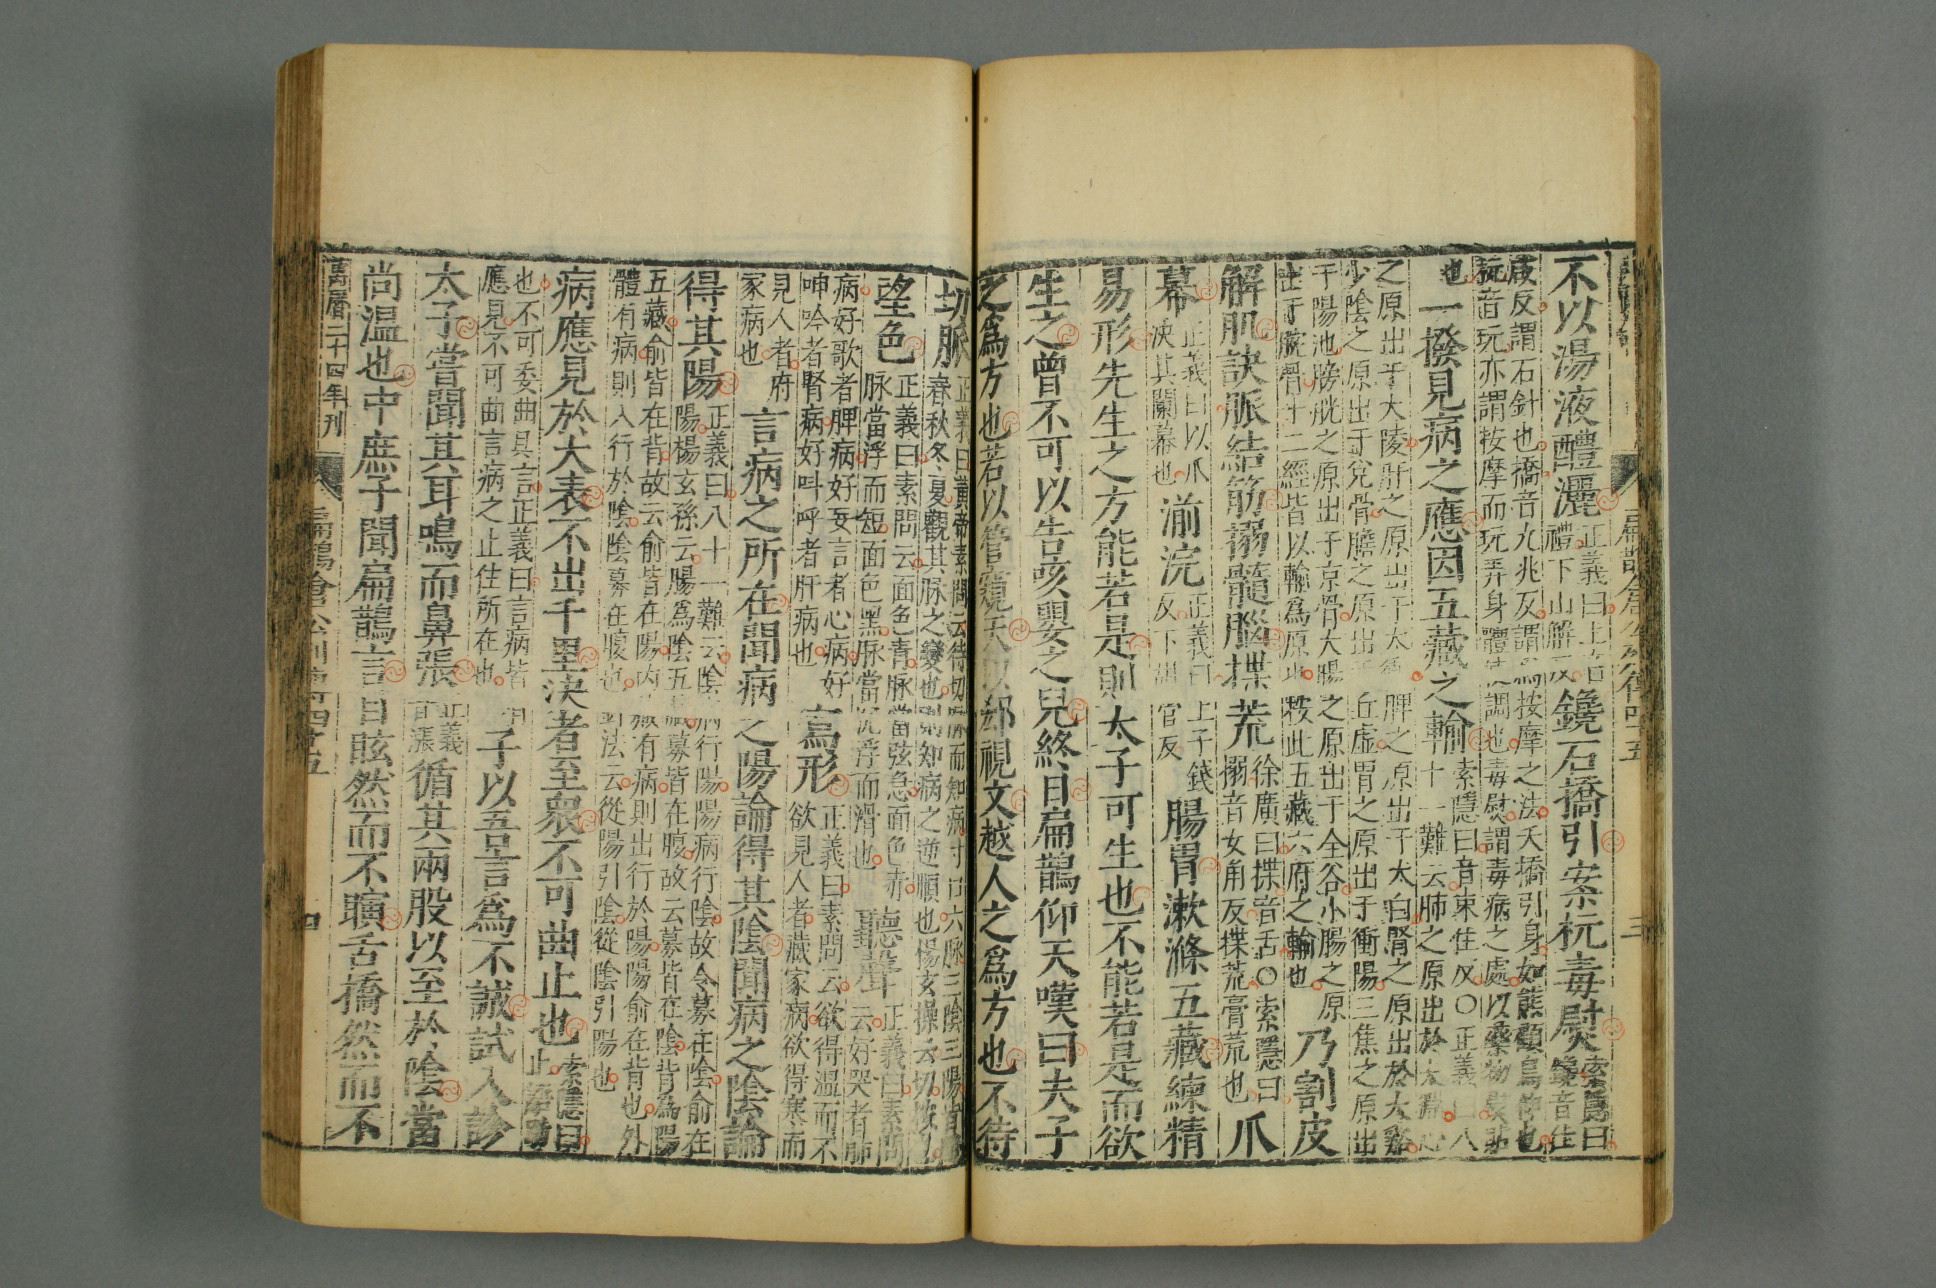 扁鵲倉公列傳四十五 三
不以湯液醴灑正義曰上音禮下山解反鑱石撟引案杬毒熨索隱曰鑱音仕
咸反謂石針也撟音九兆反謂爲按摩之法夭撟引身如熊顧鳥伸也
杬音玩亦謂按摩而玩弄身體使調也毒熨謂毒病之處以藥物熨帖
也一撥見病之應因五藏之輸索隱曰音束住反○正義曰八十一難云肺之原出於太淵心
之原出于大陵肝之原出于太衝脾之原出于太白腎之原出於太谿
少陰之原出于兌骨膽之原出于丘虛胃之原出于衝陽三焦之原出
于陽池膀胱之原出于京骨大腸之原出于全谷小腸之原出于腕骨十二經皆以輸爲原也按此五藏六府之輸也乃割皮
解肌訣脈結筋搦髓腦揲荒徐廣曰揲音舌○索隱曰搦音女角反揲荒膏荒也爪
幕正義曰以爪決其闌幕也湔浣正義曰上子錢反下胡官反腸胃漱滌五藏練精
易形先生之方能若是則太子可生也不能若是而欲
生之曾不可以告咳嬰之兒終日扁鵲仰天嘆曰夫子
之爲方也若以管窺天以郄視文越人之爲方也不待
切脈正義曰黃帝素問云待切脈而知病寸口六脈三陰三陽皆隨
春秋冬夏觀其脈之變也則知病之逆順也楊玄操云切按也
望色正義曰素問云面色青脈當弦急面色赤脈當浮而短面色黑脈當沉浮而滑也聽聲正義曰素問云好哭者肺
病好歌者脾病好妄言者心病好呻吟者腎病好叫呼者肝病也寫形正義曰素問云欲得溫而不
欲見人者藏家病欲得寒而見人者府家病也言病之所在聞病之陽論得其陰聞病之陰論
得其陽正義曰八十一難云陰病行陽陽病行陰故令募在陰俞在
陽楊玄孫云腸爲陰五藏募皆在腹故云募皆在陰背爲陽
五藏俞皆在背故云俞皆在陽內藏有病則出行於陽陽俞在背也外
體有病則入行於陰陰募在腹也針法云從陽引陰從陰引陽也
病應見於大表不出千里決者至衆不可曲止也索隱曰止語助
也不可委曲具言正義曰言病皆應見不可曲言病之止住所在也子以吾言爲不誠試入診
太子當聞其耳鳴而鼻張正義音漲循其兩股以至於陰當
尚溫也中庶子聞扁鵲言目眩然而不瞚舌撟然而不
萬曆二十四年刊 扁鵲倉公列傳四十五 四